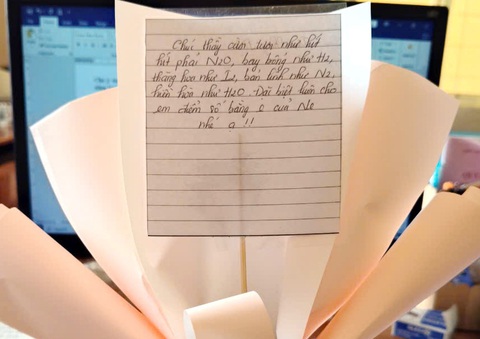 Chúc thầy cười tươi như hít
hít phải N2O, bay bổng như H2,
thăng hoa như I2, bản lĩnh như N2,
hiền hòa như H2O. Đặc biệt luôn cho
em điểm số bằng e của Ne
nhé ạ !!